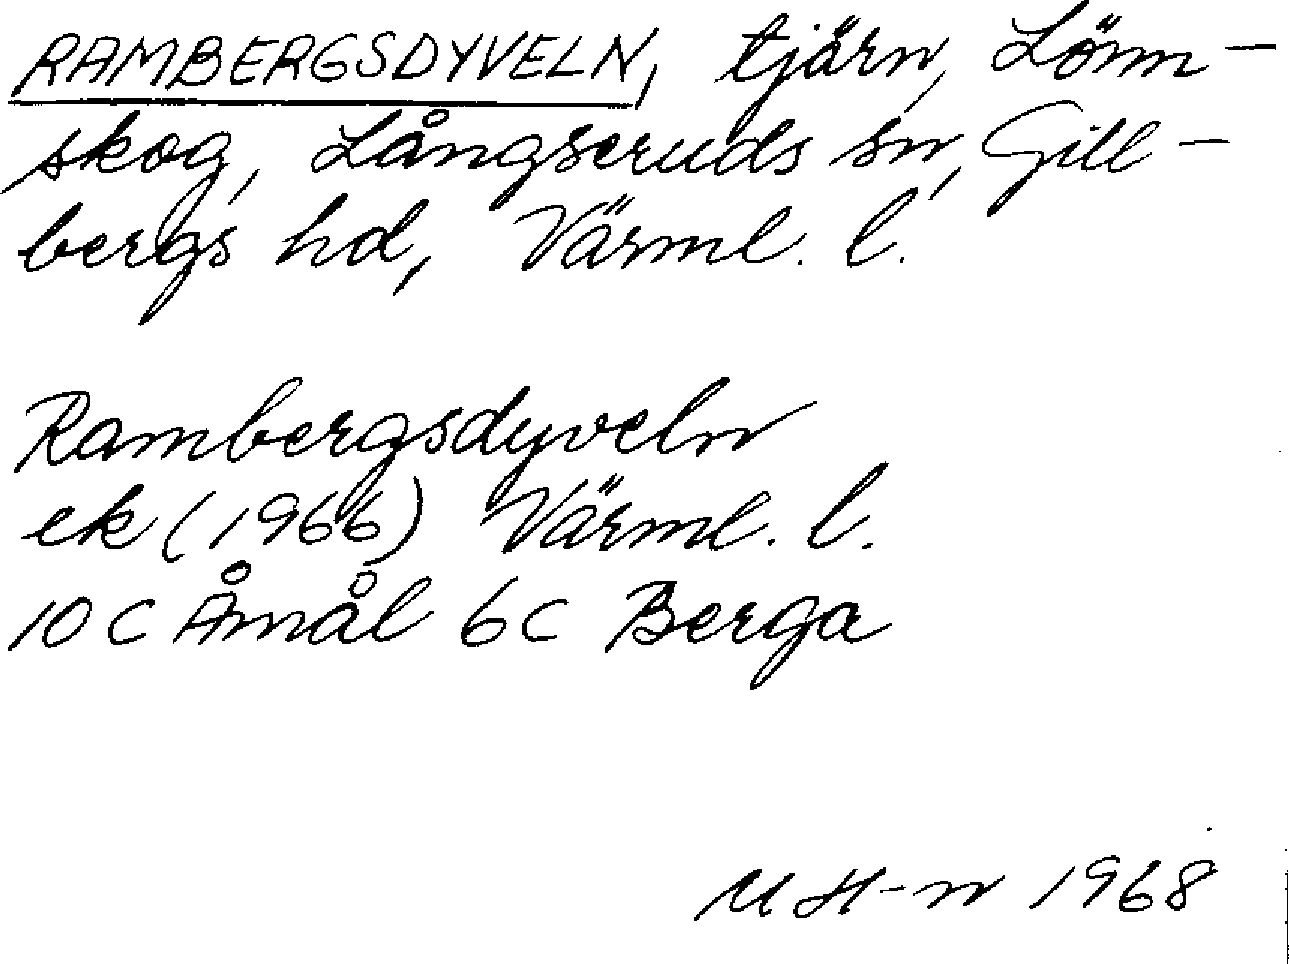 RAMBERGSDYVELN, tjärn, Lönn-
skog, Långseruds sn, Gill-
bergs hd, Värml. l.
Rambergsdyveln
ek (1966) Värml. l.
10 C Åmål 6 C Berga
M H-n 1968